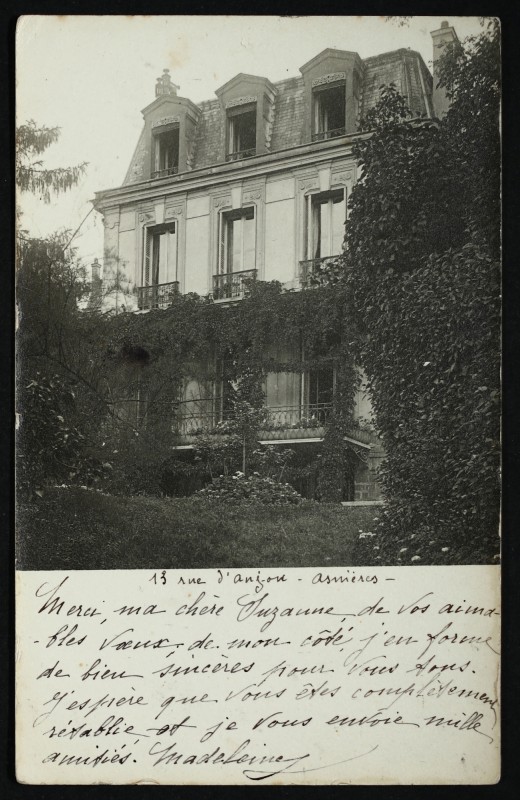 13 rue d'anjou - asnières -
Merci, ma chère Suzanne, de vos aima-
-bles vœux, de mon côté, j'en forme
de bien sincères pour vous tous.
J'espère que vous êtes complètement
rétablie, et je vous envoie mille
amitiés. Madeleine